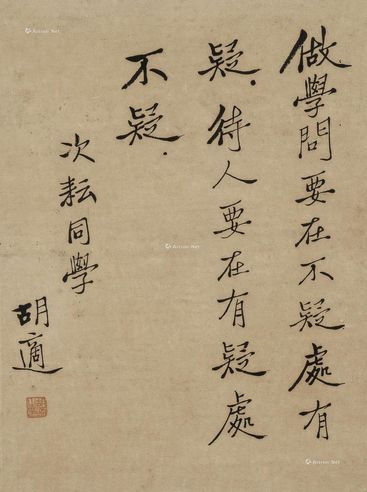 做學問要在不疑處有
疑．待人要在有疑處
不疑．
次耘同學
胡適
Artron.Net
Artron.Net
Artron.Net